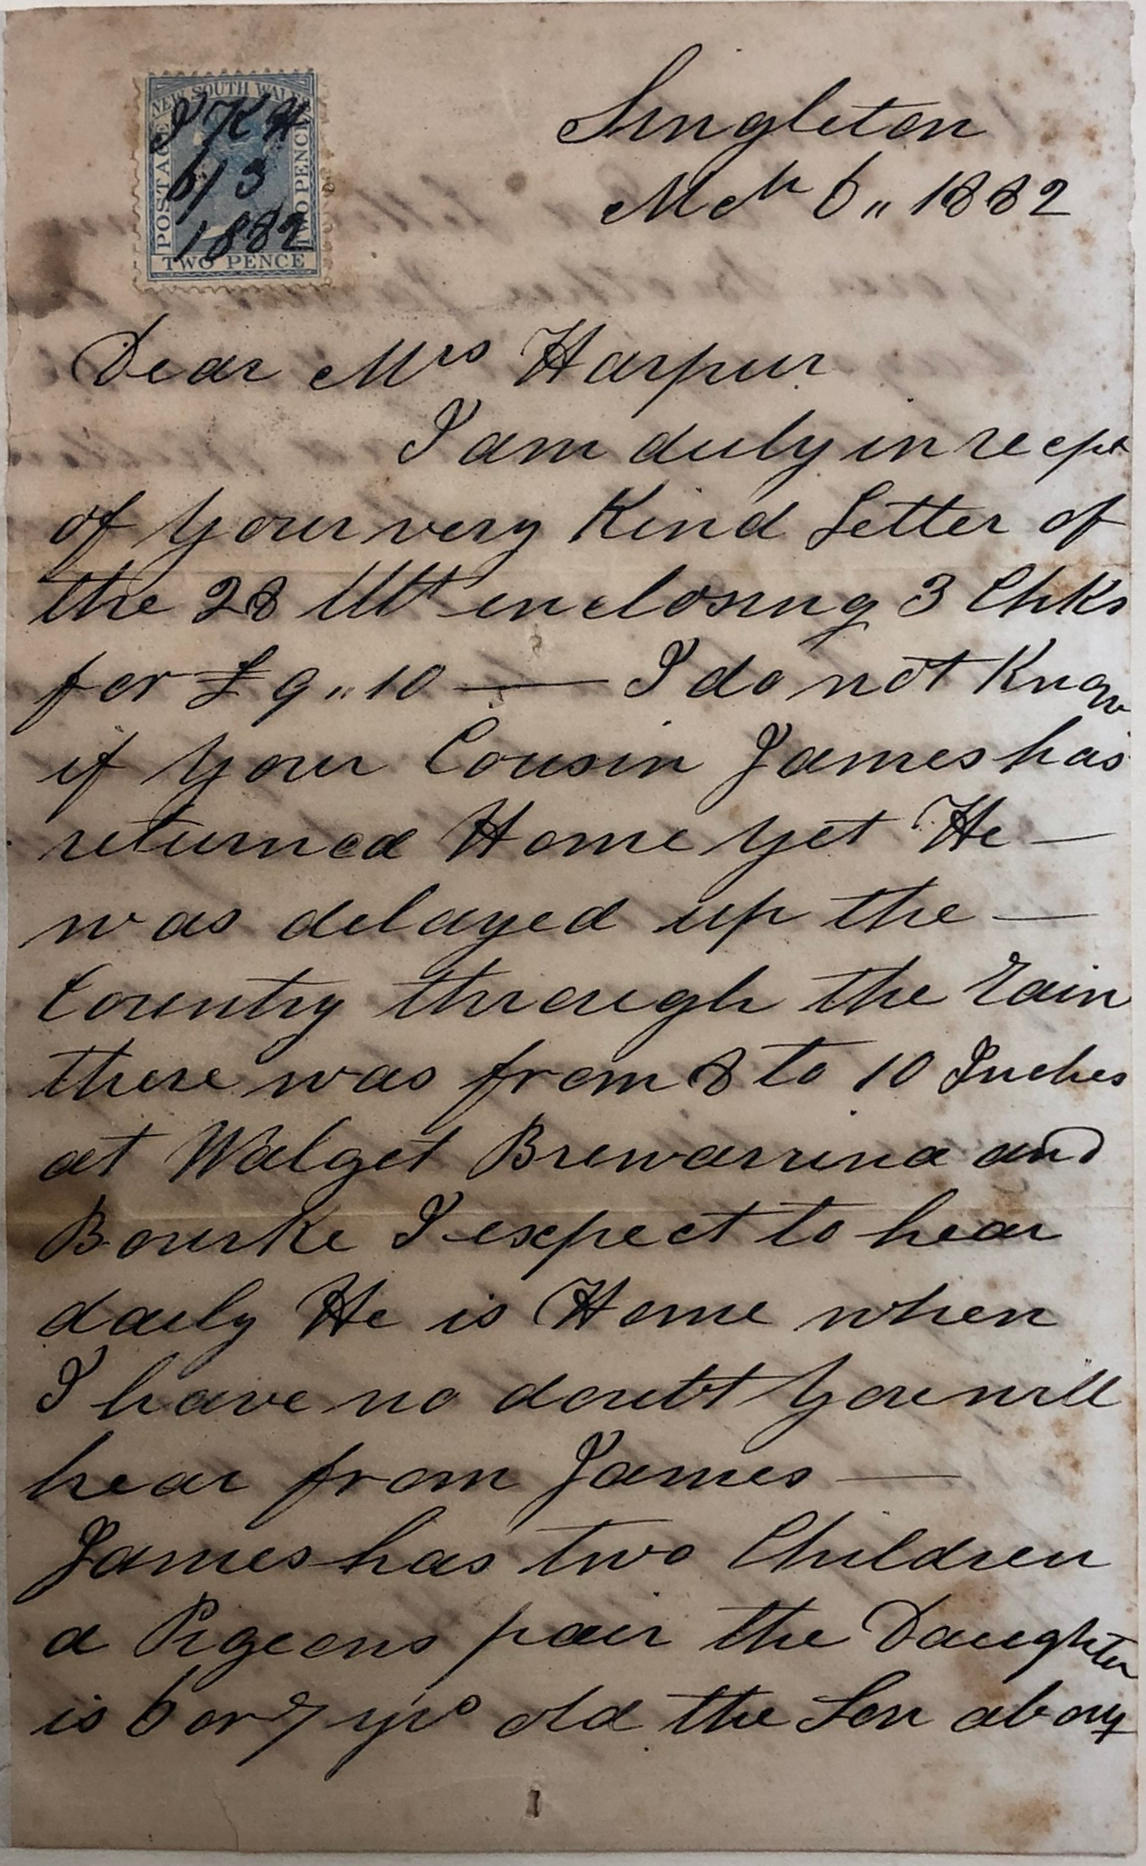 NEW SOUTH WALES
POSTAGE
TWO PENCE
TWO PENCE
JKH
6/3
1882
Singleton
Mch 6,, 1882
Dear Mrs Harpur
I am duly in recpt
of your very Kind Letter of
the 28 Ult enclosing 3 Chks
for £9,,10 — I do not Know
if your Cousin James has
returned Home yet He —
was delayed up the —
Country through the rain
there was from 8 to 10 Inches
at Walget Brewarrina and
Bourke I expect to hear
daily He is Home when
I have no doubt you will
hear from James —
James has two Children
a Pigeons pair the Daughter
is 6 or 7 yrs old the Son about